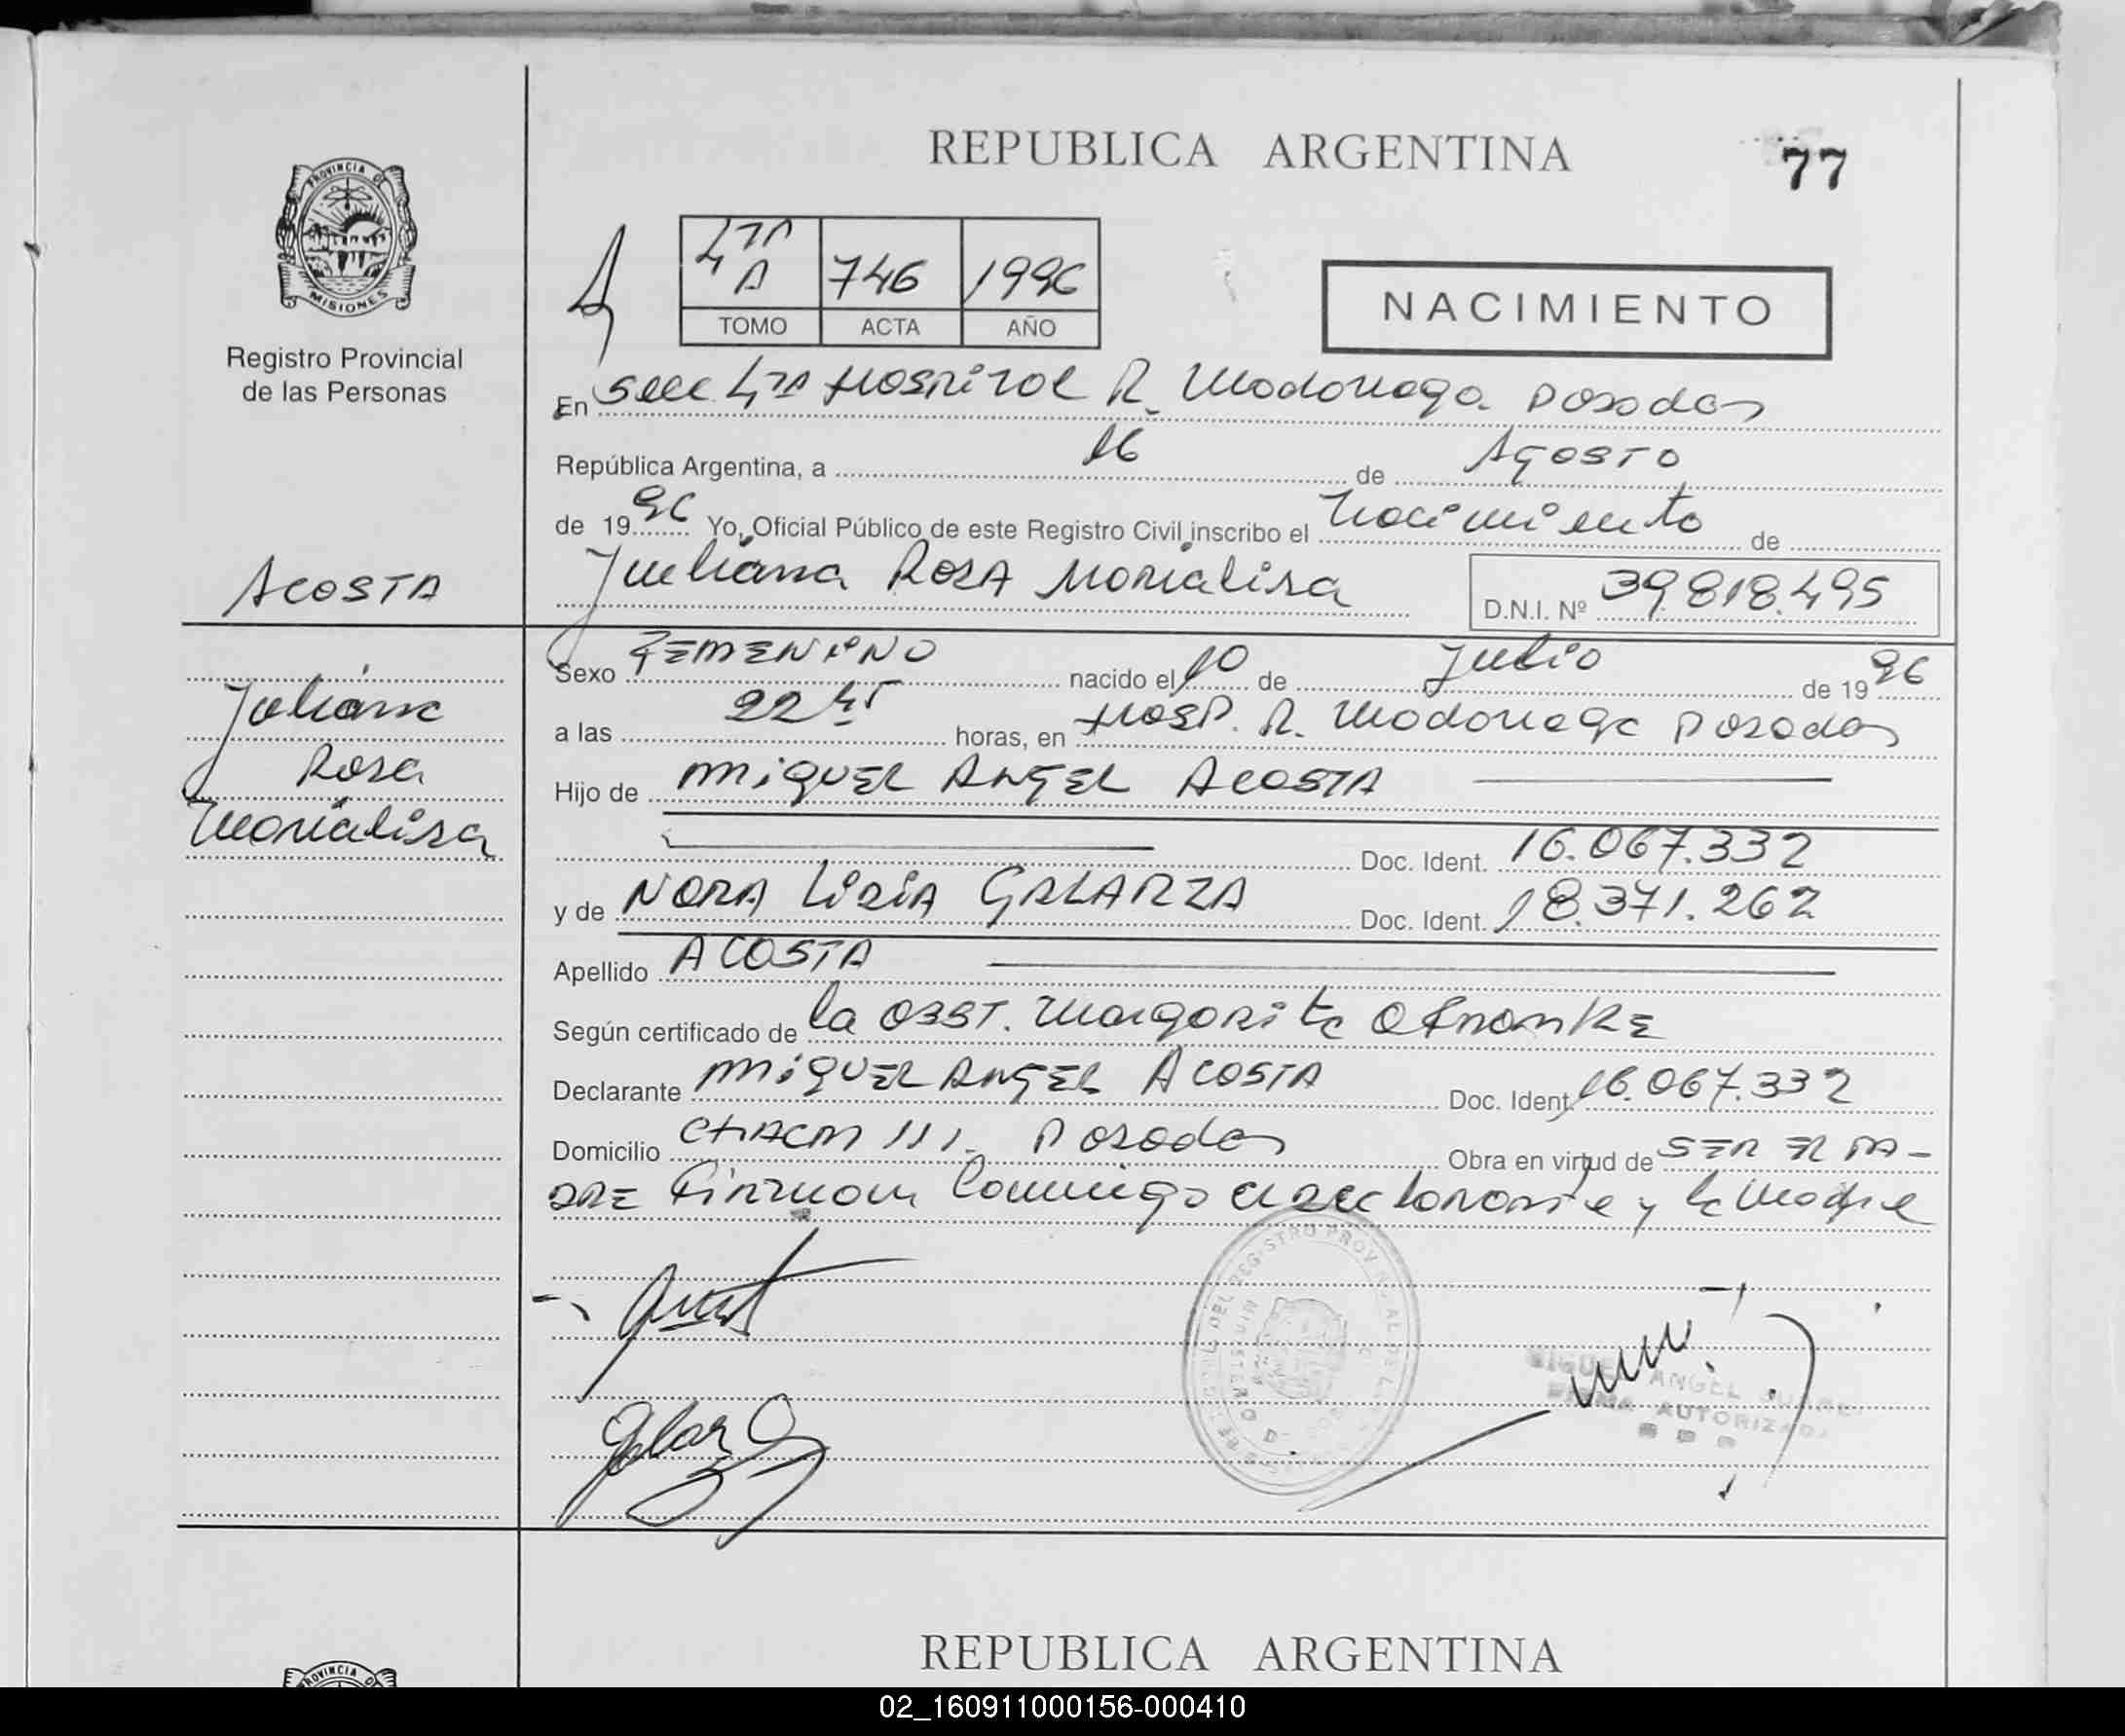 REPUBLICA ARGENTINA
77
PROVINCIA DE
MISIONES
Registro Provincial
de las Personas
4TA A 746 1996
TOMO ACTA AÑO
NACIMIENTO
En Secc 4TA Hospital R. Madariaga Posadas
República Argentina, a 16 de Agosto
de 1996 Yo, Oficial Público de este Registro Civil inscribo el Nacimiento de
Juliana Rosa Monalisa D.N.I. Nº 39.818.495
ACOSTA
Juliana
Rosa
Monalisa
Sexo FEMENINO nacido el 10 de Julio de 1996
a las 22 hs horas, en Hosp. R. Madariaga Posadas
Hijo de MIGUEL ANGEL ACOSTA
Doc. Ident. 16.067.332
y de NORA LIDIA GALARZA Doc. Ident. 18.371.262
Apellido ACOSTA
Según certificado de la OBST. Margarita
Declarante MIGUEL ANGEL ACOSTA Doc. Ident. 16.067.332
Domicilio CHACRA 111. Posadas Obra en virtud de SER EL PA-
DRE Firman Conmigo el declarante y la Madre
ANGEL
FIRMA AUTORIZADA
REPUBLICA ARGENTINA
PROVINCIA
02_160911000156-000410